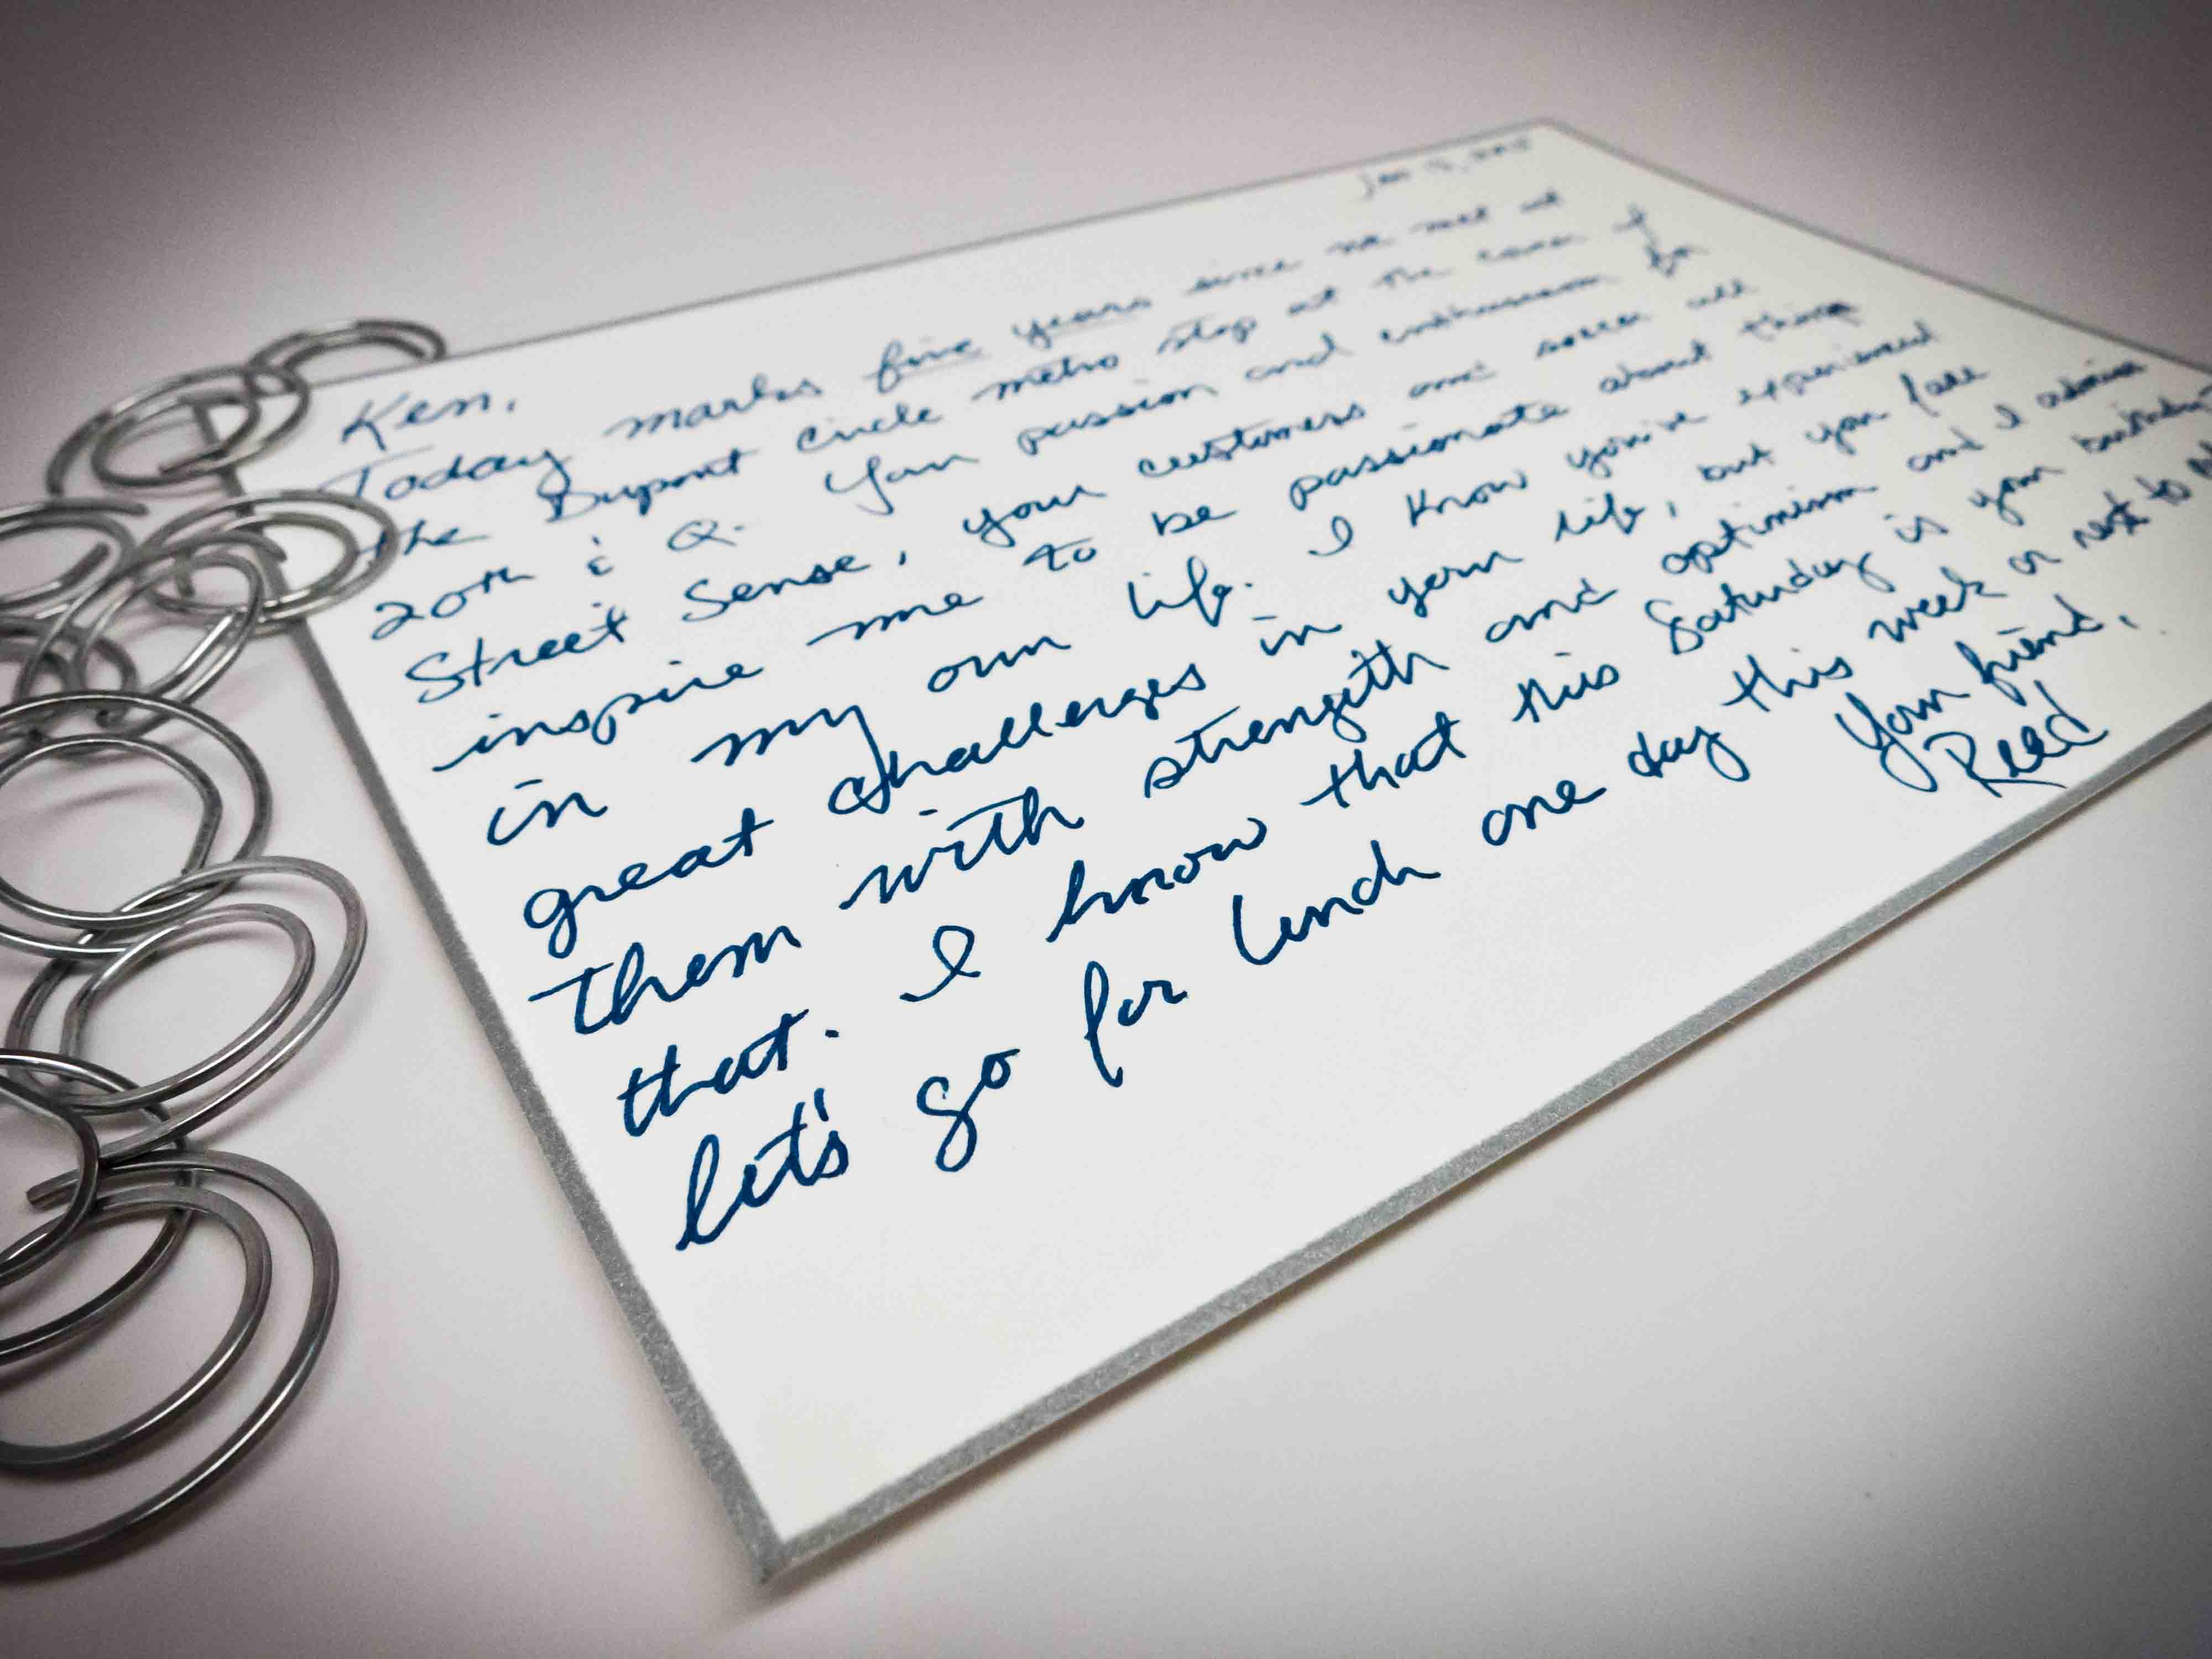 Jan 5, 2015
Ken,
Today marks five years since we met at
the Dupont Circle metro stop at the corner of
20th & Q. Your passion and enthusiasm for
Street Sense, your customers and soccer all
inspire me to be passionate about things
in my own life. I know you've experienced
great challenges in your life, but you face
them with strength and optimism and I admire
that. I know that this Saturday is your birthday
let's go for lunch one day this week or next to
Your friend,
Reed